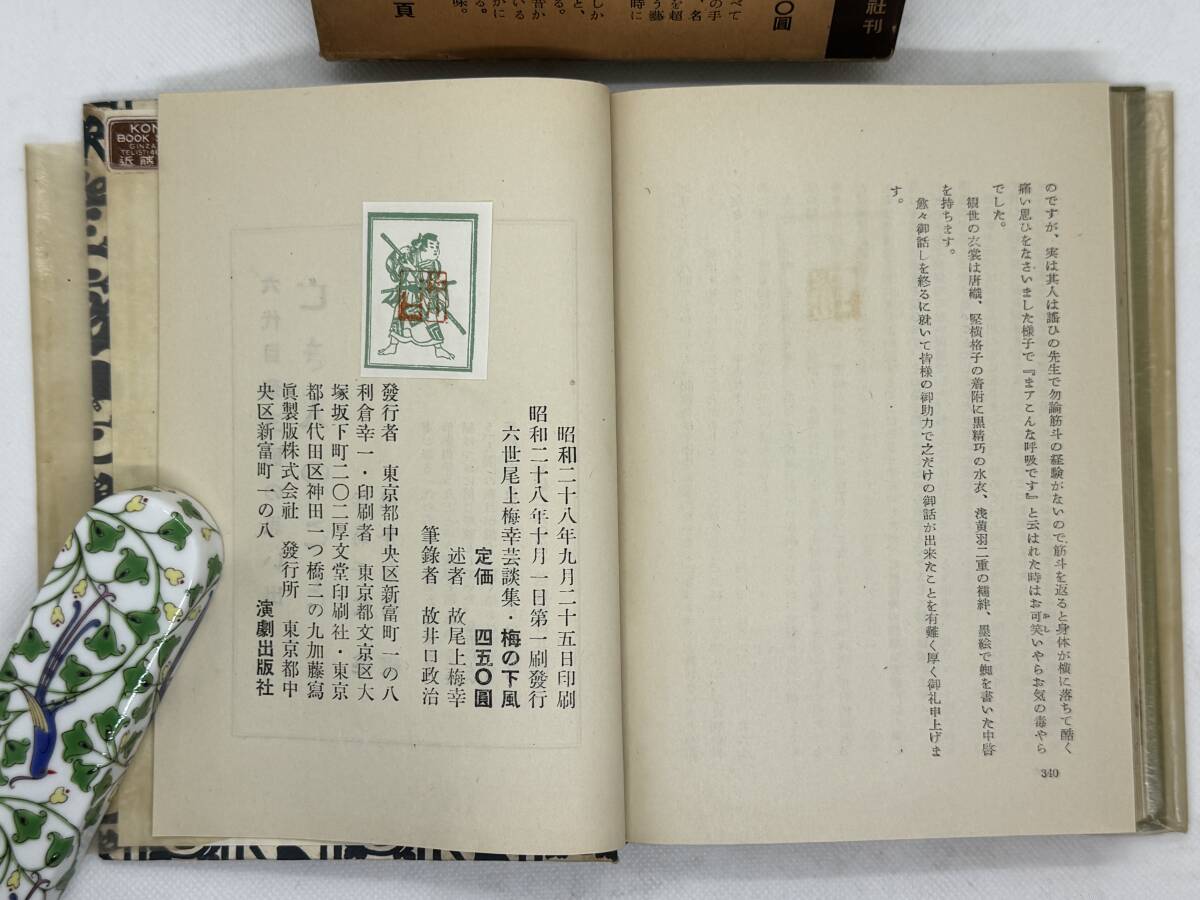 社刊
〇圓
頁
KON
BOOK
GINZA
近藤
のですが、実は其人は謠ひの先生で勿論筋斗の経験がないので筋斗を返ると身体が横に落ちて酷く
痛い思ひをなさいました様子で『まアこんな呼吸です』と云はれた時はお可笑いやらお気の毒やら
でした。
観世の衣裳は唐織、堅横格子の着附に黒精巧の水衣、浅黄羽二重の襦袢、墨絵で蜘を書いた中啓
を持ちます。
愈々御話しを終るに就いて皆様の御助力で之だけの御話が出来たことを有難く厚く御礼申上げま
す。
340
昭和二十八年九月二十五日印刷
昭和二十八年十月一日第一刷發行
六世尾上梅幸芸談集・梅の下風
定価 四五〇圓
述者 故尾上梅幸
筆錄者 故井口政治
發行者 東京都中央区新富町一の八
利倉幸一・印刷者 東京都文京区大
塚坂下町二〇二厚文堂印刷社・東京
都千代田区神田一つ橋二の九加藤寫
眞製版株式会社 發行所 東京都中
央区新富町一の八 演劇出版社